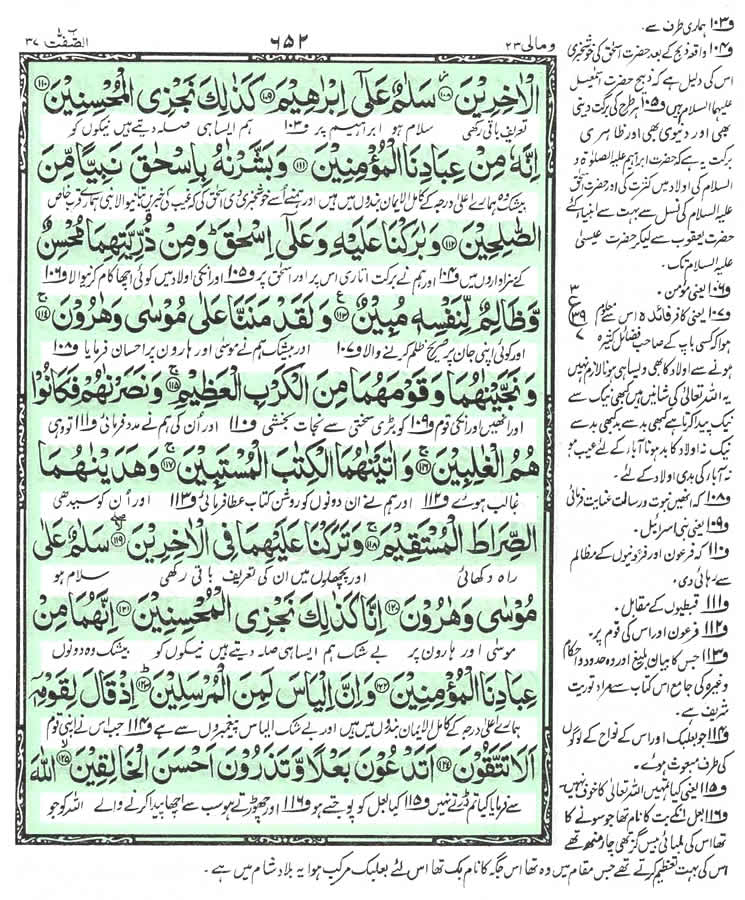 الصّٰفّٰت ٣٧
٦٥٢
ومالى ٢٣
الْاٰخِرِيْنَ ۝١٠٨ سَلٰمٌ عَلٰٓى اِبْرٰهِيْمَ ۝١٠٩ كَذٰلِكَ نَجْزِى الْمُحْسِنِيْنَ ۝١١٠
تعریف باقی رکھی سلام ہو ابراہیم پر و١٠٣ ہم ایسا ہی صلہ دیتے ہیں نیکوں کو
اِنَّهٗ مِنْ عِبَادِنَا الْمُؤْمِنِيْنَ ۝١١١ وَبَشَّرْنٰهُ بِاِسْحٰقَ نَبِيًّا مِّنَ
بیشک وہ ہمارے اعلیٰ درجہ کے کامل الایمان بندوں میں ہیں اور ہم نے اسے خوشخبری دی اسحٰق کی کہ غیب کی خبریں بتانیوالا نبی ہمارے قرب خاص
الصّٰلِحِيْنَ ۝١١٢ وَبٰرَكْنَا عَلَيْهِ وَعَلٰٓى اِسْحٰقَ ؕ وَمِنْ ذُرِّيَّتِهِمَا مُحْسِنٌ
کے سزاواروں میں و١٠٤ اور ہم نے برکت اتاری اس پر اور اسحٰق پر و١٠٥ اور انکی اولاد میں کوئی اچھا کام کرنیوالا و١٠٦
وَّظَالِمٌ لِّنَفْسِهٖ مُبِيْنٌ ۝١١٣ ع وَلَقَدْ مَنَنَّا عَلٰى مُوْسٰى وَهٰرُوْنَ ۝١١٤ ج
اور کوئی اپنی جان پر صریح ظلم کرنے والا و١٠٧ اور بیشک ہم نے موسٰی اور ہارون پر احسان فرمایا و١٠٨
وَنَجَّيْنٰهُمَا وَقَوْمَهُمَا مِنَ الْكَرْبِ الْعَظِيْمِ ۝١١٥ وَنَصَرْنٰهُمْ فَكَانُوْا
اور انھیں اور انکی قوم و١٠٩ کو بڑی سختی سے نجات بخشی و١١٠ اور اُن کی ہم نے مدد فرمائی و١١١ تو وہی
هُمُ الْغٰلِبِيْنَ ۝١١٦ وَاٰتَيْنٰهُمَا الْكِتٰبَ الْمُسْتَبِيْنَ ۝١١٧ وَهَدَيْنٰهُمَا
غالب ہوئے و١١٢ اور ہم نے ان دونوں کو روشن کتاب عطا فرمائی و١١٣ اور اُن کو سیدھی
الصِّرَاطَ الْمُسْتَقِيْمَ ۝١١٨ وَتَرَكْنَا عَلَيْهِمَا فِى الْاٰخِرِيْنَ ۝١١٩ سَلٰمٌ عَلٰى
راہ دکھائی اور پچھلوں میں ان کی تعریف باقی رکھی سلام ہو
مُوْسٰى وَهٰرُوْنَ ۝١٢٠ اِنَّا كَذٰلِكَ نَجْزِى الْمُحْسِنِيْنَ ۝١٢١ اِنَّهُمَا مِنْ
موسٰی اور ہارون پر بے شک ہم ایسا ہی صلہ دیتے ہیں نیکوں کو بیشک وہ دونوں
عِبَادِنَا الْمُؤْمِنِيْنَ ۝١٢٢ وَاِنَّ اِلْيَاسَ لَمِنَ الْمُرْسَلِيْنَ ۝١٢٣ اِذْ قَالَ لِقَوْمِهٖٓ
ہمارے اعلیٰ درجہ کے کامل الایمان بندوں میں ہیں اور بے شک الیاس پیغمبروں سے ہے و١١٤ جب اس نے اپنی قوم
اَلَا تَتَّقُوْنَ ۝١٢٤ اَتَدْعُوْنَ بَعْلًا وَّتَذَرُوْنَ اَحْسَنَ الْخَالِقِيْنَ ۝١٢٥ اللّٰهَ
سے فرمایا کیا تم ڈرتے نہیں و١١٥ کیا بعل کو پوجتے ہو و١١٦ اور چھوڑتے ہو سب سے اچھا پیدا کرنے والے اللہ کو جو
و١٠٣ ہماری طرف سے۔
و١٠٤ واقعہ ذبح کے بعد حضرت اسحٰق کی خوشخبری
اس کی دلیل ہے کہ ذبیح حضرت اسمٰعیل
علیہما السلام ہیں و١٠٥ ہر طرح کی برکت دینی
بھی اور دنیوی بھی اور ظاہری
برکت یہ ہے کہ حضرت ابراہیم علیہ الصلوٰۃ و
السلام کی اولاد میں کثرت کی اور حضرت اسحٰق
علیہ السلام کی نسل سے بہت سے انبیا کئے
حضرت یعقوب سے لیکر حضرت عیسیٰ
علیہ السلام تک۔
و١٠٦ یعنی مومن۔
٣
ع
٣٩
٧
و١٠٧ یعنی کافر فائدہ اس سے معلوم
ہوا کہ کسی باپ کے صاحب فضائل کثیرہ
ہونے سے اولاد کا بھی ویسا ہی ہونا لازم نہیں
یہ اللہ تعالیٰ کی شانیں ہیں کبھی نیک سے
نیک پیدا کرتا ہے کبھی بد سے بد کبھی بد سے
نیک نہ اولاد کا بد ہونا آباء کے لئے عیب ہو
نہ آباء کی بدی اولاد کے لئے۔
و١٠٨ کہ انھیں نبوت و رسالت عنایت فرمائی
و١٠٩ یعنی بنی اسرائیل۔
و١١٠ کہ فرعون اور فرعونیوں کے مظالم
سے رہائی دی۔
و١١١ قبطیوں کے مقابل۔
و١١٢ فرعون اور اس کی قوم پر۔
و١١٣ جس کا بیان بلیغ اور وہ حدود و احکام
وغیرہ کی جامع اس کتاب سے مراد توریت
شریف ہے۔
و١١٤ جو بعلبک اور اس کے نواح کے لوگوں
کی طرف مبعوث ہوئے۔
و١١٥ یعنی کیا تمہیں اللہ تعالیٰ کا خوف نہیں
و١١٦ بعل انکے بت کا نام تھا جو سونے کا
تھا اس کی لمبائی بیس گز تھی چار منھ تھے
اس کی بہت تعظیم کرتے تھے جس مقام میں وہ تھا اس جگہ کا نام بک تھا اس لئے بعلبک مرکب ہوا یہ بلاد شام میں ہے۔